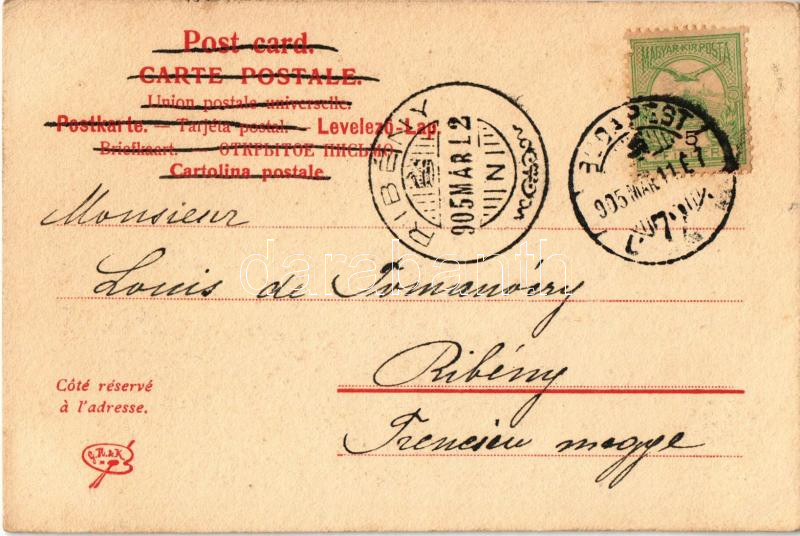 Post card.
CARTE POSTALE.
Union postale universelle.
Postkarte. — Tarjéta postal — Levelező-Lap.
Briefkaart. — ОТКРЫТОЕ ПИСЬМО.
Cartolina postale
MAGYAR·KIR·POSTA
5
RIBÉNY
905 MAR 12
N 1
BUDAPEST
905 MAR 11
Monsieur
Louis de Tomanóczy
Ribény
Trencsén megye
Côté réservé
à l'adresse.
darabanth